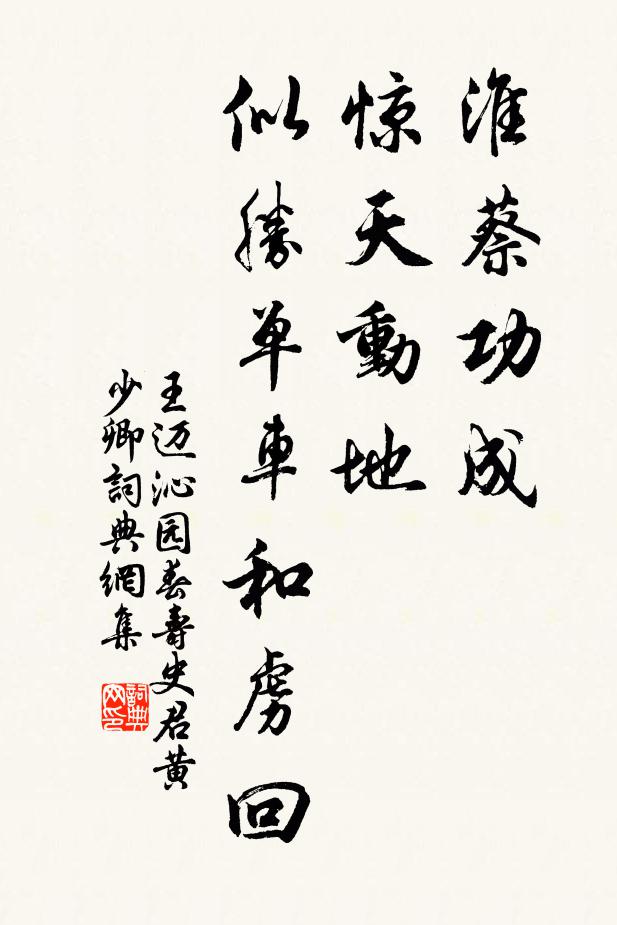 淮蔡功成
惊天動地
似勝单車和虏回
王迈沁园春壽史君黄
少卿詞典網集
詞典
网印